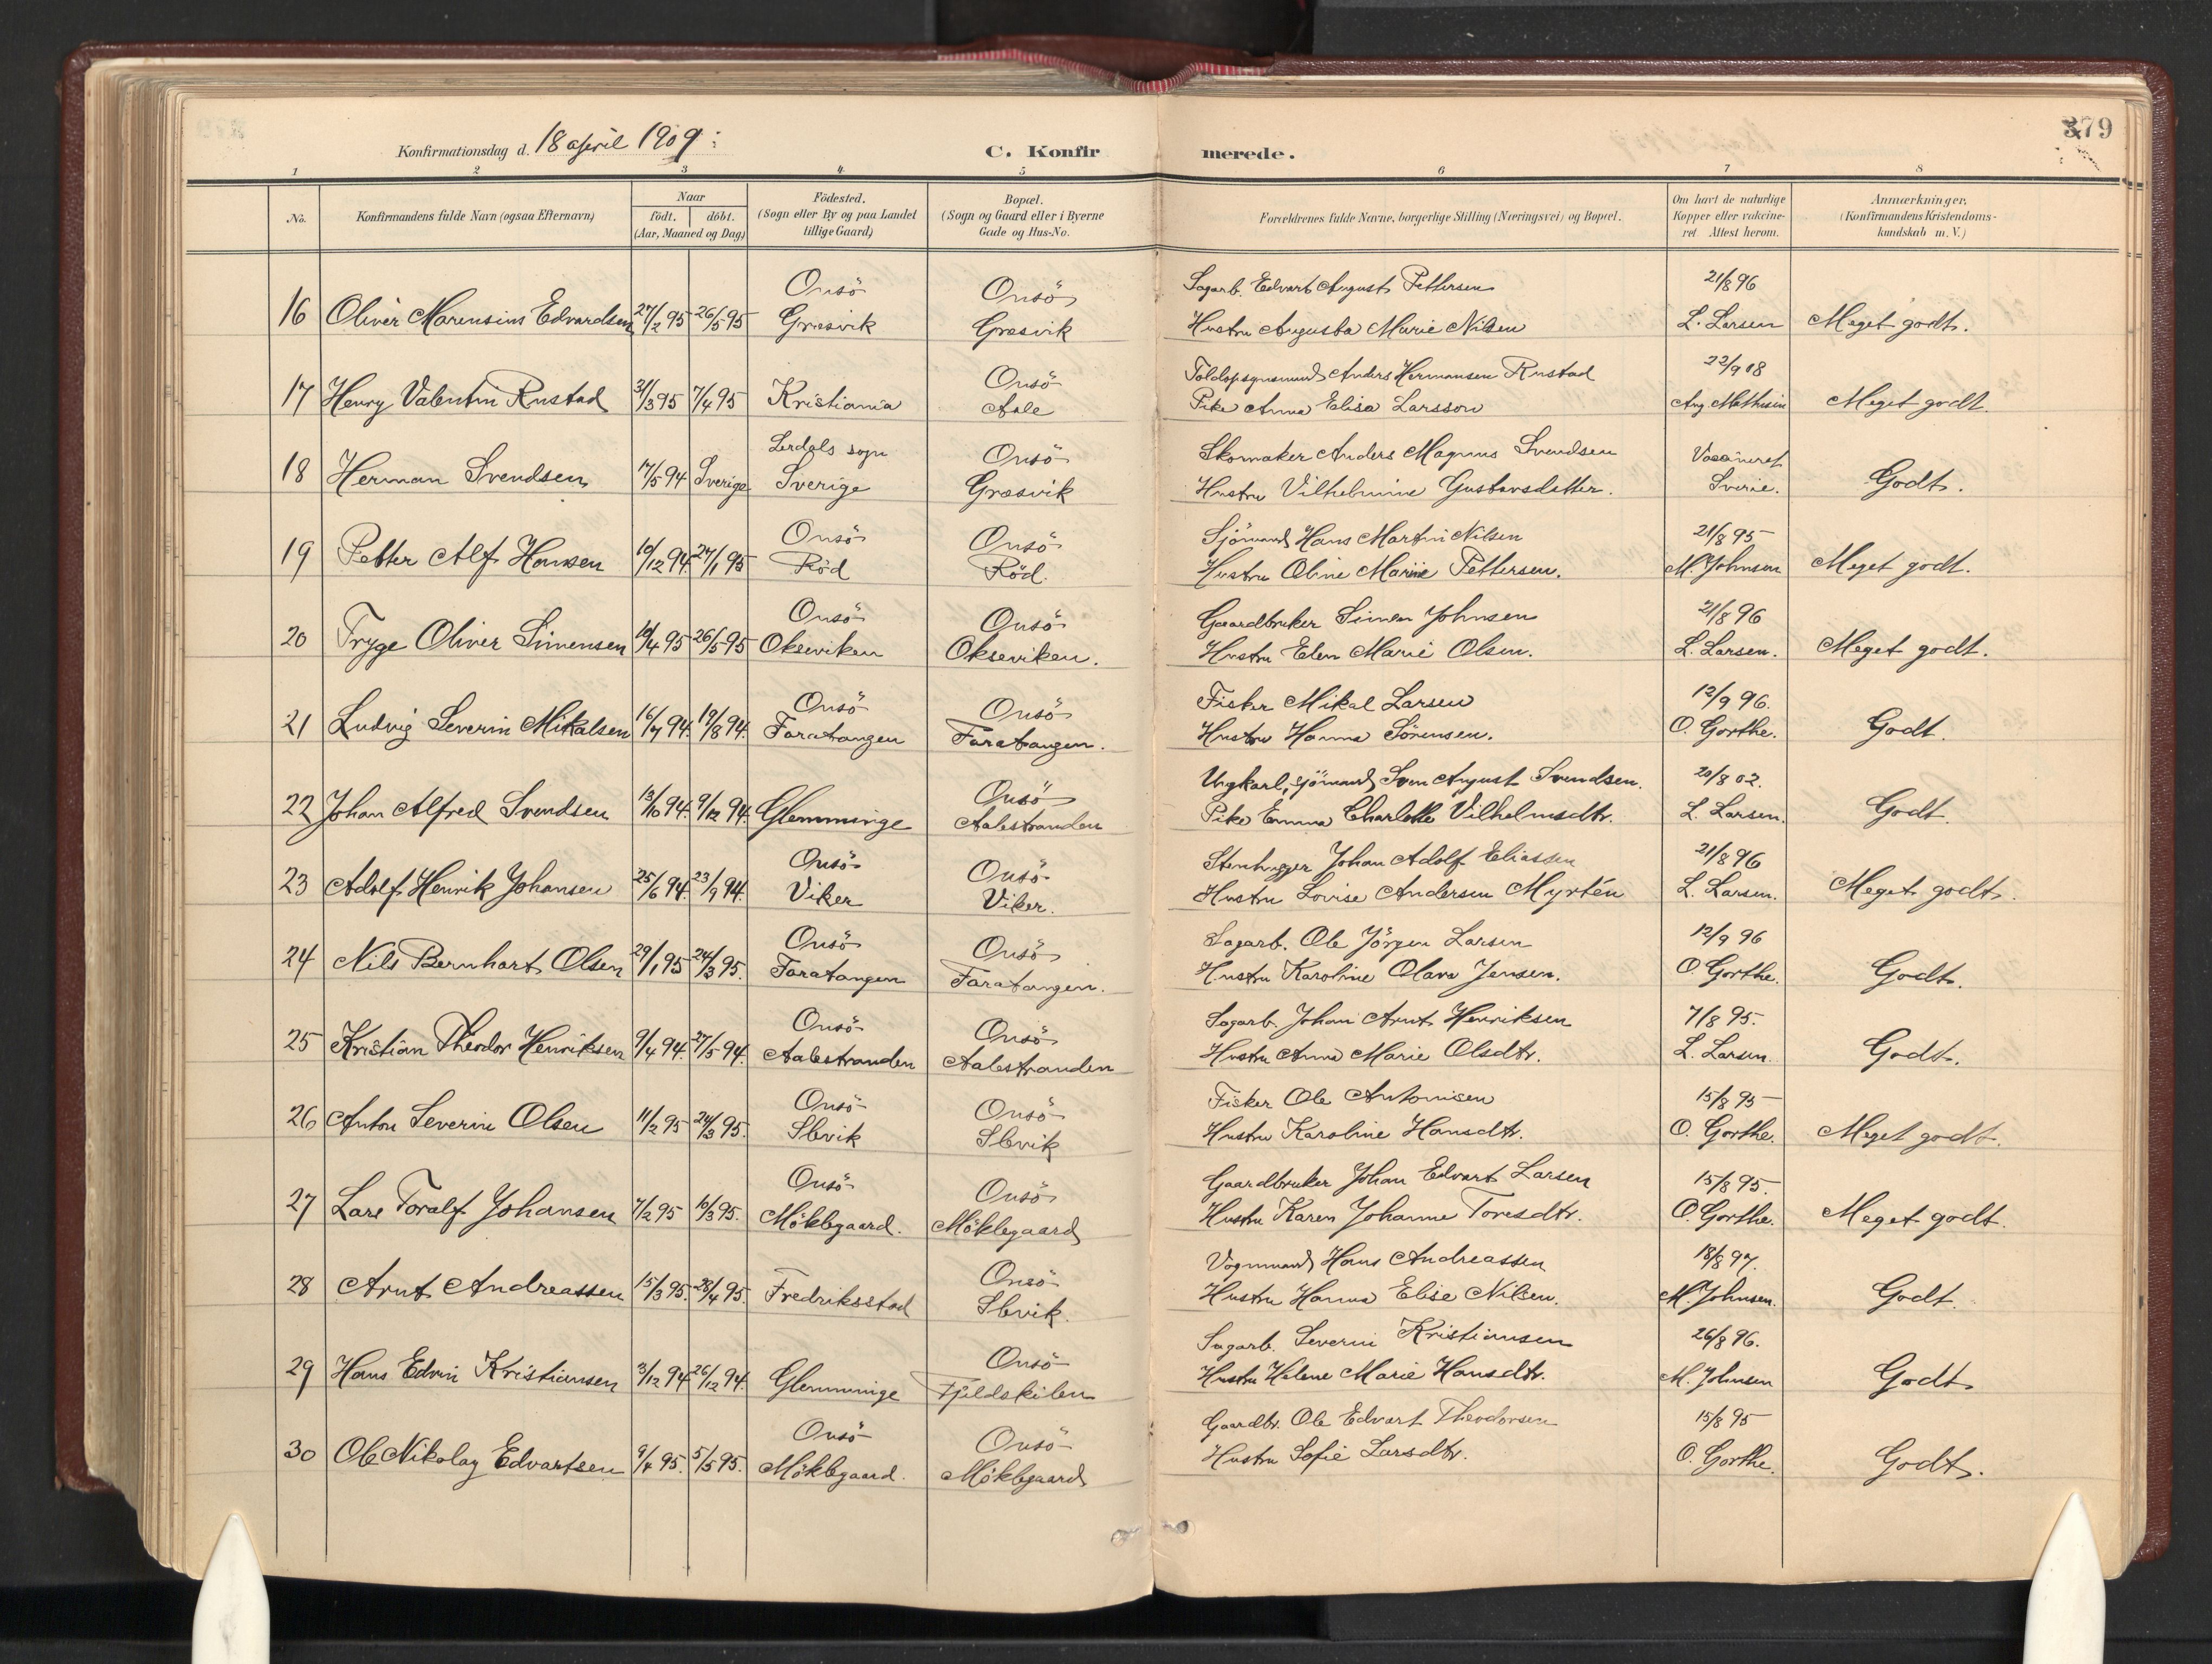 Konfirmationsdag d. 18 april 1909: C. Konfirmerede. 379
1 2 3 4 5 6 7 8
No. Konfirmandens fulde Navn (ogsaa Efternavn) Naar födt. döbt. (Aar, Maaned og Dag) Födested. (Sogn eller By og paa Landet tillige Gaard) Bopæl. (Sogn og Gaard eller i Byerne Gade og Hus-No. Forældrenes fulde Navne, borgerlige Stilling (Næringsvei) og Bopæl. Om havt de naturlige Kopper eller vakcineret Attest herom. Anmærkninger. (Konfirmandens Kristendomskundskab m. V.)
Onsö Onsö Sagarb. Edvart August Pettersen 21/8 96
16 Oliver Marensius Edvardsen 27/2 95 26/5 95 Græsvik Græsvik Hustru Augusta Marie Nilsen L. Larsen Meget godt.
Onsö Toldopsynsmand Anders Hermansen Rustad 22/9 08
17 Henry Valentin Rustad 31/3 95 7/4 95 Kristiania Aale Pike Anna Elisa Larsson Aug Mathisen Meget godt.
Lerdals sogn Onsö Skomaker Anders Magnus Svendsen Vaccineret
18 Herman Svendsen 17/5 94 Sverige Sverige Græsvik Hustru Vilhelmine Gustavsdatter. Sverie. Godt.
Onsö Onsö Sjömand Hans Martin Nilsen 21/8 95
19 Petter Alf Hansen 10/12 94. 27/1 95 Röd Röd. Hustru Oline Marie Pettersen. M. Johnsen Meget godt.
Onsö Onsö Gaardbruker Simen Johnsen 21/8 96
20 Tryge Oliver Simensen 10/4 95 26/5 95 Okseviken Okseviken. Hustru Elen Marie Olsen. L. Larsen. Meget godt.
Onsö Onsö Fisker Mikal Larsen 12/9 96.
21 Ludvig Severin Mikalsen 16/7 94. 19/8 94. Faratangen Faratangen. Hustru Hanna Sörensen. O. Gorthe. Godt.
Onsö Ungkarl, sjömand Sven August Svendsen. 20/8 02.
22 Johan Alfred Svendsen 13/10 94. 9/12 94. Glemminge Aalestranden Pike Emma Charlotte Vilhelmsdtr. L. Larsen. Godt.
Onsö Onsö Stenhugger Johan Adolf Eliassen 21/8 96
23 Adolf Henrik Johansen 25/6 94. 23/9 94. Viker Viker. Hustru Lovise Andersen Myrtén L. Larsen. Meget godt.
Onsö Onsö Sagarb. Ole Jörgen Larsen 12/9 96
24 Nils Bernhart Olsen 29/1 95 24/3 95. Faratangen Faratangen. Hustru Karoline Olava Jensen. O. Gorthe. Godt.
Onsö Onsö Sagarb. Johan Arnt Henriksen 7/8 95.
25 Kristian Theodor Henriksen 9/4 94. 27/5 94. Aalestranden Aalestranden Hustru Anna Marie Olsdtr. L. Larsen. Godt.
Onsö Onsö Fisker Ole Antonisen 15/8 95
26 Anton Severin Olsen 11/2 95 24/3 95. Slevik Slevik Hustru Karoline Hansdtr. O. Gorthe. Meget godt.
Onsö Onsö Gaardbruker Johan Edvart Larsen 15/8 95.
27 Lars Toralf Johansen 7/2 95 10/3 95. Möklegaard. Möklegaard Hustru Karen Johanne Toresdtr. O. Gorthe. Meget godt.
Onsö Vognmand Hans Andreassen 18/8 97.
28 Arnt Andreassen 15/3 95. 28/4 95. Fredriksstad Slevik. Hustru Hanna Elise Nilsen. M. Johnsen. Godt.
Onsö Sagarb. Severin Kristiansen 26/8 96.
29 Hans Edvin Kristiansen 3/12 94 26/12 94. Glemminge Fjeldskilen Hustru Helene Marie Hansdtr. M. Johnsen Godt
Onsö Onsö Gaardbr. Ole Edvart Theodorsen 15/8 95
30 Ole Nikolay Edvartsen 9/4 95. 5/5 95. Möklegaard. Möklegaard Hustru Sofie Larsdtr. O. Gorthe. Godt.